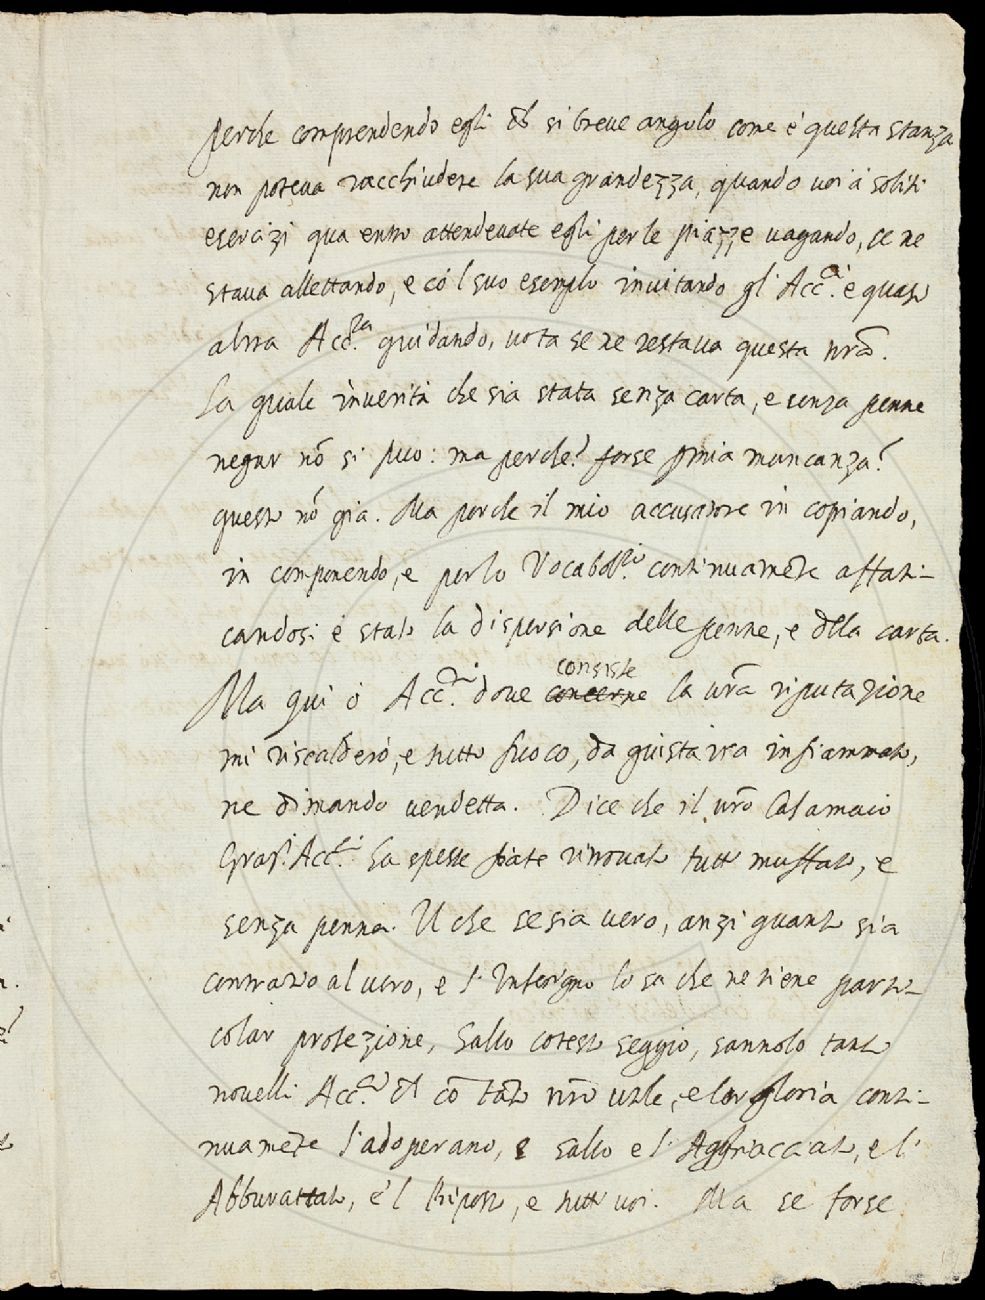 perche comprendendo egli ch' si breue angulo come è questa stanza
non poteua racchiudere la sua grandezza, quando uoi à soliti
esercizi qua entro attendeuate egli per le piazze uagando, se ne
staua allettando, e cól suo esemplo inuitando gl' Acc.ci è quasi
altra Acc.za guidando, uota se ne restaua questa nrã.
La quale inuerità che sia stata senza carta, e senza penne
negar nõ si puo: ma perche? forse p mia mancanza?
questo nõ gia. Ma perche il mio accusatore in copiando,
in componendo, e per lo Vocabol.io continuamẽte affati-
candosi è stato la dispersione delle penne, e dlla carta.
Ma qui ò Acc.ci doue concerne consiste la urã riputazione
mi riscalderó, e tutto fuoco, da giusta ira infiammato,
ne dimando uendetta. Dice che il urõ Calamaio
Graf. Acc.ci ha spesse fiate ritrouato tutto muffato, e
senza penna. Il che se sia uero, anzi quanto sia
contrario al uero, e l' Inferigno lo sa che ne tiene parti-
colar protezione, Sallo cotesto seggio, sannolo tanti
nouelli Acc.ci ch cõ tãto nrõ utile, e lor gloria conti-
nuamẽte l'adoperano, e sallo e l' Agghiacciato, e l'
Abburattato, e 'l Riposto, e tutti uoi. Ma se forse